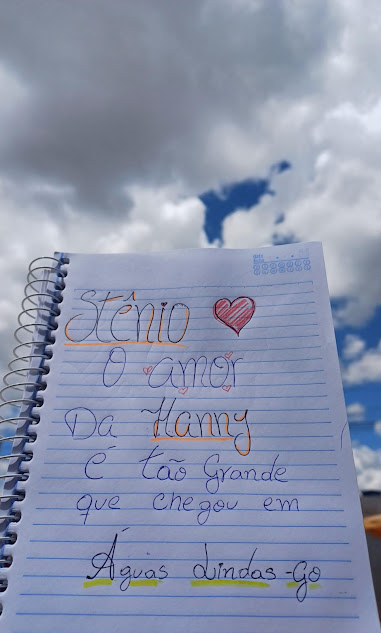 Stênio
O amor
Da Hanny
é tão Grande
que chegou em
Águas Lindas-Go